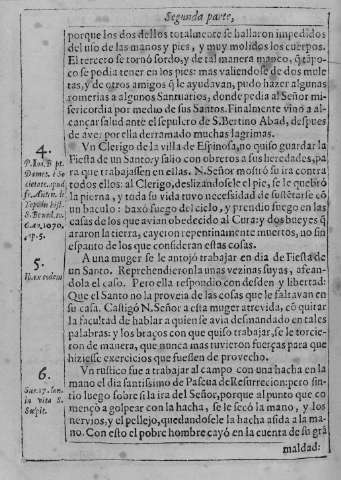 Segunda parte,
porque los dos dellos totalmente se hallaron impedidos
del uso de las manos y pies, y muy molidos los cuerpos.
El tercero se tornó sordo, y de tal manera manco, q̃ tāpo-
co se podia tener en los pies: mas valiendose de dos mule
tas, y de otros amigos q̃ le ayudavan, pudo házer algunas
romerias a algunos Santuarios, donde pedia al Señor mi-
sericordia por medio de sus Santos. Finalmente vino a al-
cançar salud ante el sepulcro de S. Bertino Abad, despues
de aver por ella derramado muchas lagrimas.
4.
Un Clerigo de la villa de Espinosa, no quiso guardar la
Fiesta de un Santo: y salio con obreros a sus heredades, pa
ra que trabajassen en ellas. N. Señor mostró su ira contra
todos ellos: al Clerigo, deslizandosele el pie, se le quebrò
la pierna, y toda su vida tuvo necessidad de sustẽtarse cõ
un baculo: baxó fuego del cielo, y prendio fuego en las
casas de los que avian obedecido al Cura: y dos bueyes q̃
araron la tierra, cayeron repentinamente muertos, no sin
espanto de los que consideran estas cosas.
6.an.1070,
c.p.5.
5.
A una muger se le antojó trabajar en dia de Fiesta de
un Santo. Reprehendieronla unas vezinas suyas, afean-
dola el caso. Pero ella respondio con desden y libertad:
Que el Santo no la proveia de las cosas que le faltavan en
su casa. Castigó N. Señor a esta muger atrevida, cõ quitar
la facultad de hablar a quien se avia desmandado en tales
palabras: y los braços con que quiso trabajar, se le torcie-
ron de manera, que nunca mas tuvieron fuerças para que
hiziesse exercicios que fuessen de provecho.
6.
Un rustico fue a trabajar al campo con una hacha en la
mano el dia santissimo de Pascua de Resurreccion: pero sin-
tio luego sobre sí la ira del Señor, porque al punto que co
mençò a golpear con la hacha, se le secó la mano, y los
nervios, y el pellejo, quedandosele la hacha asida a la ma-
no. Con esto el pobre hombre cayó en la cuenta de su grã
in vita S.
maldad: